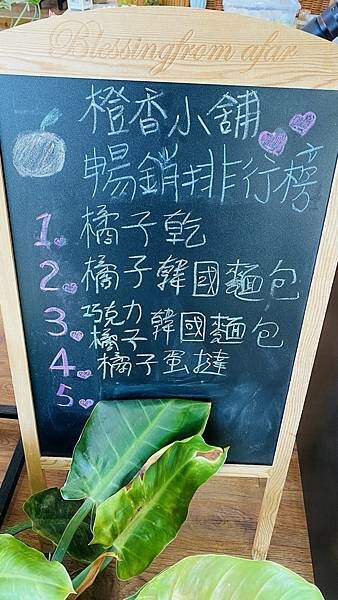 Blessing from afar
橙香小舖
暢銷排行榜
1. 橘子乾
2. 橘子韓國麵包
3. 巧克力橘子韓國麵包
4. 橘子蛋撻
5.